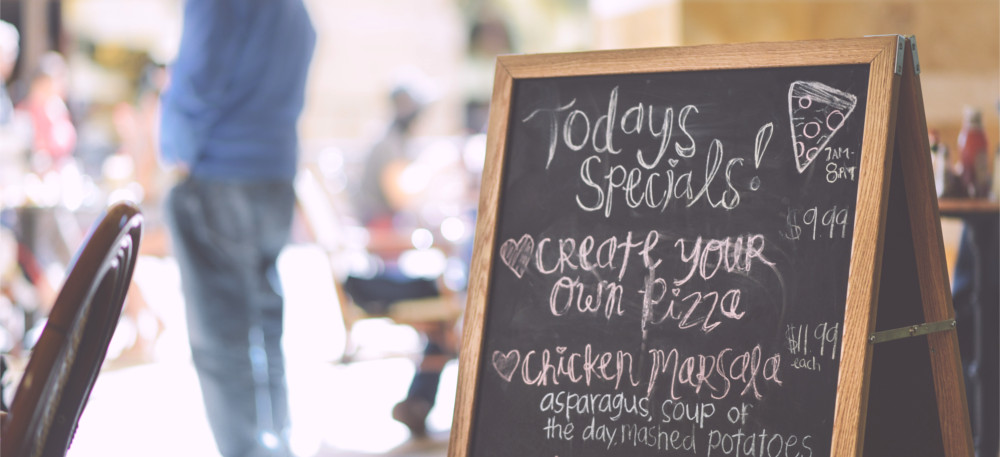 Todays
Specials!
7AM-
8PM
$9.99
Create Your
Own Pizza
$11.99
each
Chicken Marsala
asparagus, soup of
the day, mashed potatoes